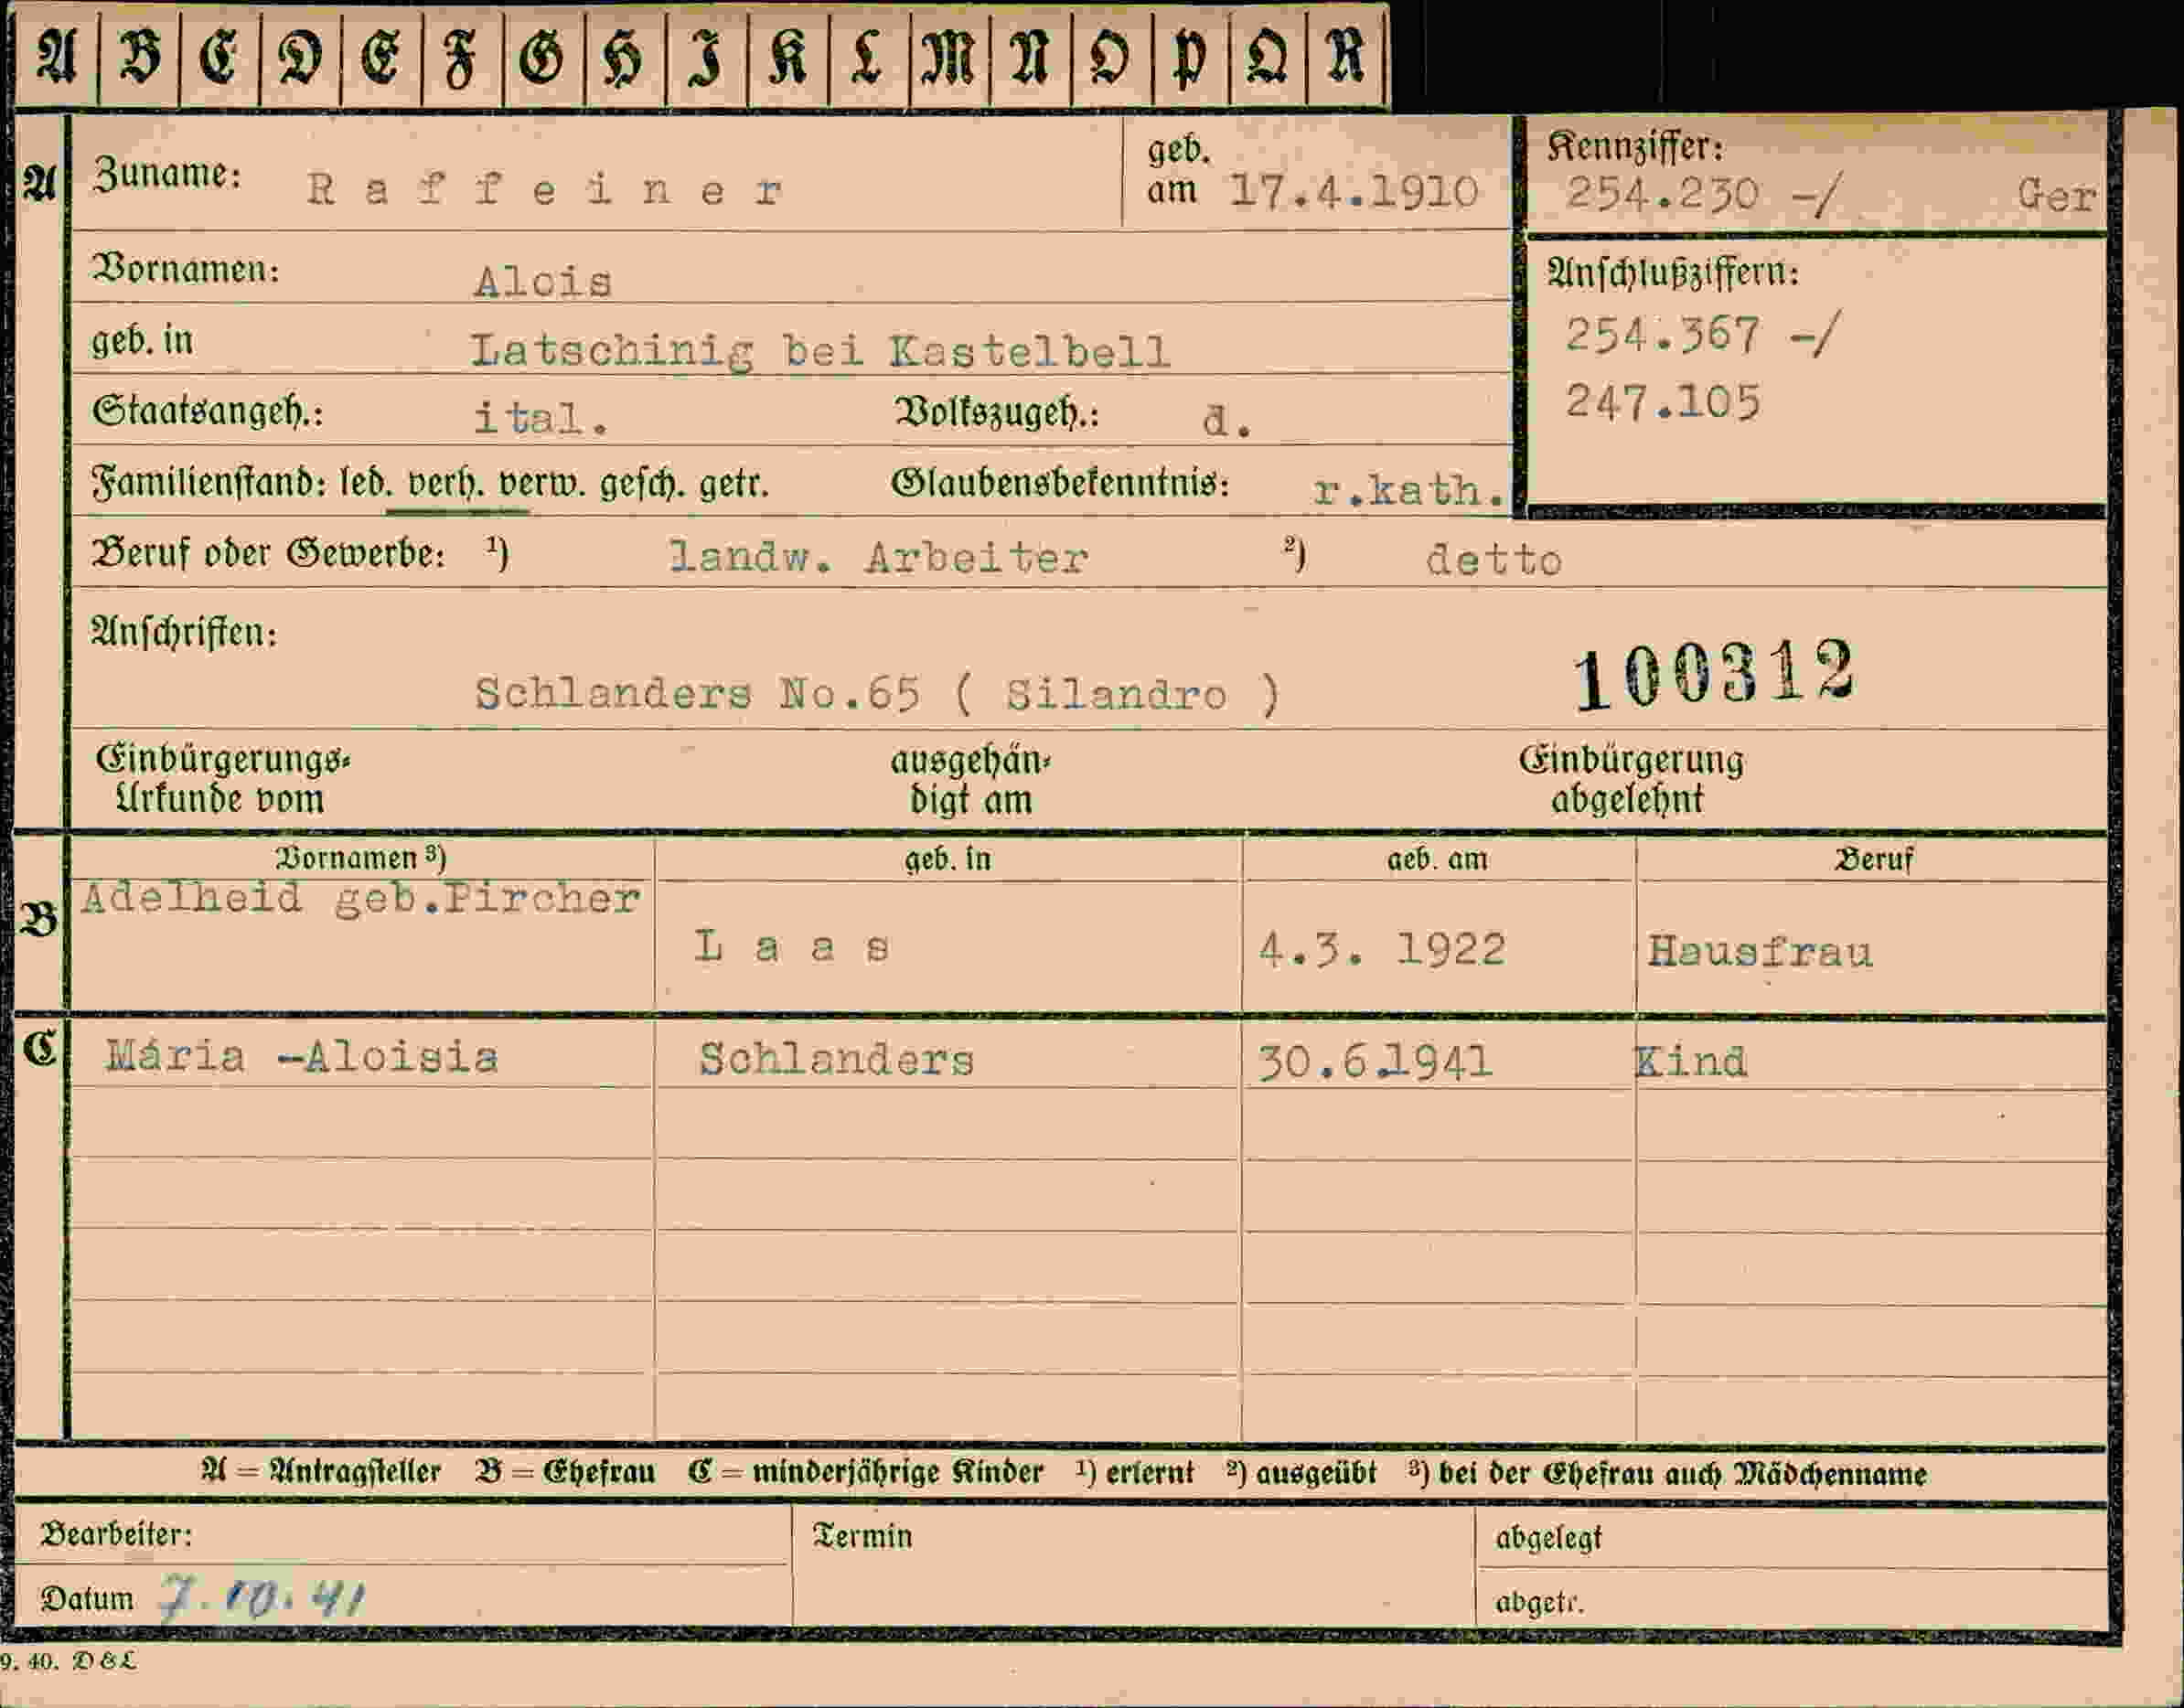 A B C D E F G H I K L M N O P Q R
A Zuname: Raffeiner geb. am 17.4.1910
Kennziffer: 254.230 -/ Ger
Vornamen: Alois
Anschlußziffern:
geb. in Latschinig bei Kastelbell
254.367 -/
Staatsangeh.: ital. Volkszugeh.: d.
247.105
Familienstand: led. verh. verw. gesch. getr. Glaubensbekenntnis: r.kath.
Beruf oder Gewerbe: ¹) landw. Arbeiter ²) detto
Anschriften:
Schlanders No.65 ( Silandro ) 100312
Einbürgerungs- ausgehän- Einbürgerung
Urkunde vom digt am abgelehnt
Vornamen ³) geb. in geb. am Beruf
B Adelheid geb.Pircher
Laas 4.3. 1922 Hausfrau
C Mária -Aloisia Schlanders 30.6.1941 Kind
A = Antragsteller B = Ehefrau C = minderjährige Kinder ¹) erlernt ²) ausgeübt ³) bei der Ehefrau auch Mädchenname
Bearbeiter: Termin abgelegt
Datum 7.10.41 abgetr.
9. 40. D & L